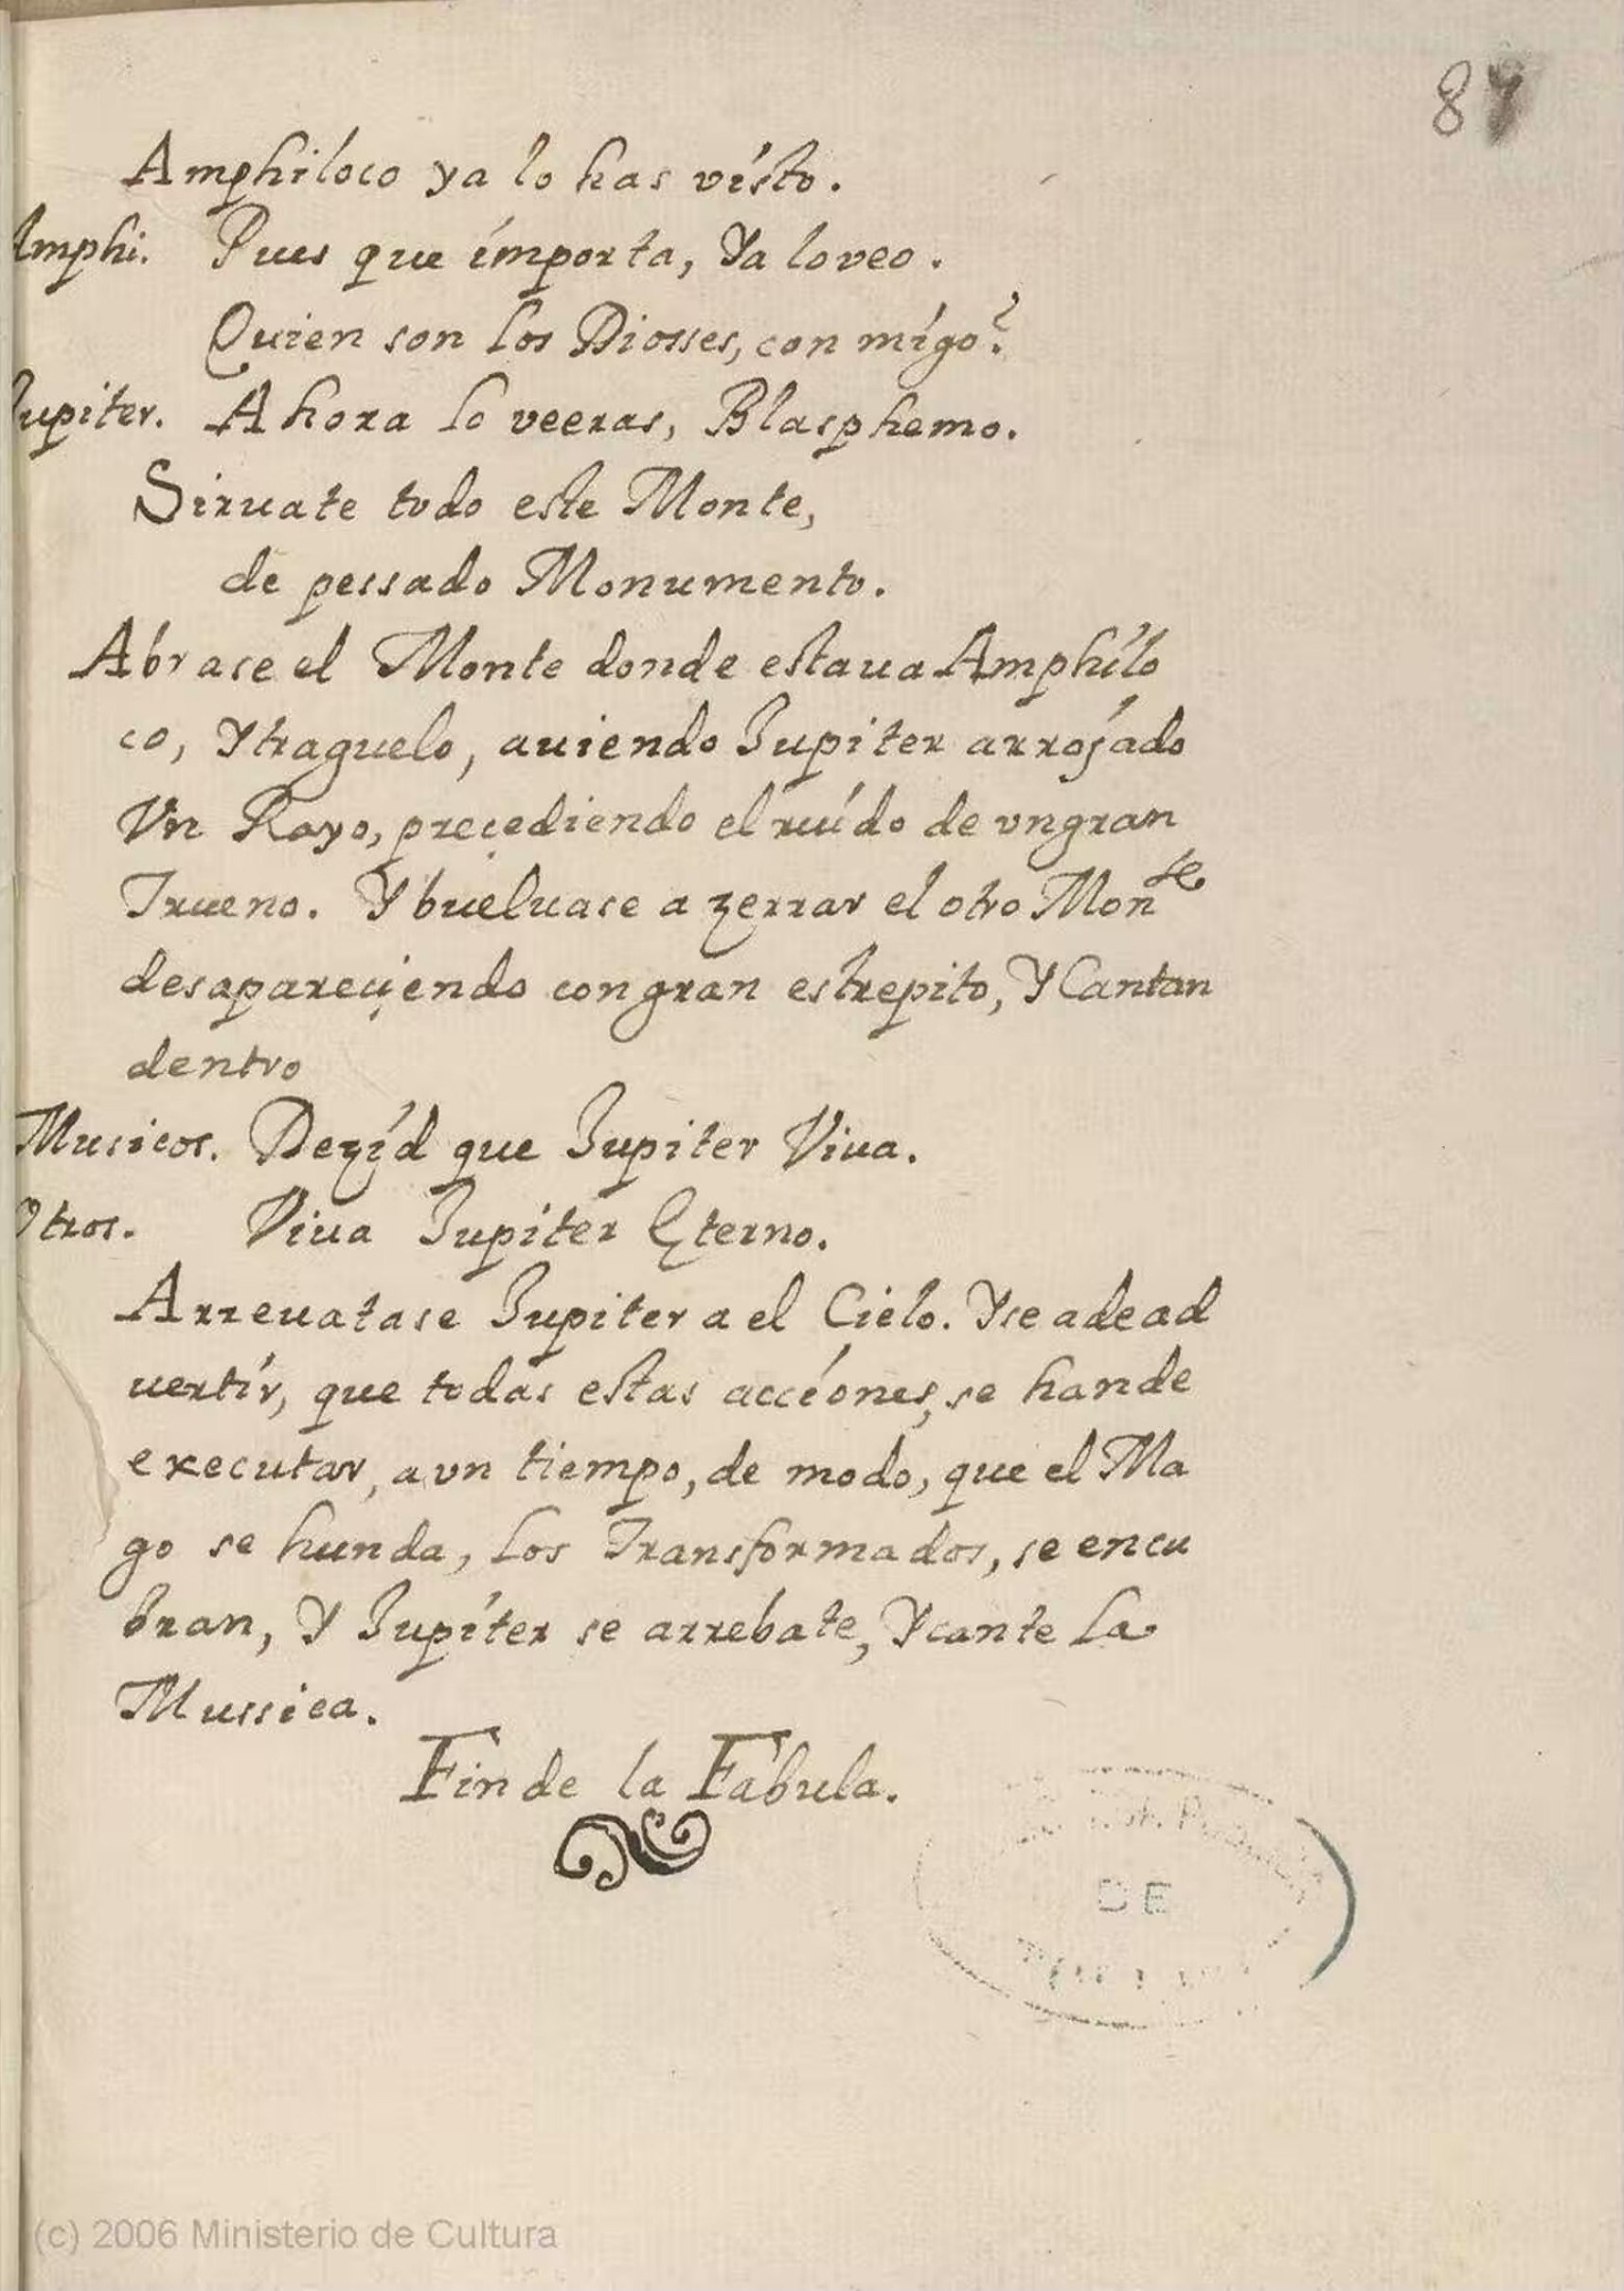 87
Amphiloco ya lo has visto.
Amphi. Pues que importa, Ya lo veo.
Quien son los Diosses, con migo?
Jupiter. A hora lo veeras, Blasphemo.
Siruate todo este Monte,
de pessado Monumento.
Abrase el Monte donde estaua Amphilo
co, Y traguelo, auiendo Jupiter arrojado
Vn Rayo, precediendo el ruido de vn gran
Trueno. Y bueluase a zerrar el otro Monte
desapareciendo con gran estrepito, Y Cantan
dentro
Musicos. Dezid que Jupiter Viua.
Otros. Viua Jupiter Eterno.
Arreuatase Jupiter a el Cielo. Y se a de ad
uertir, que todas estas acciones, se han de
executar, a vn tiempo, de modo, que el Ma
go se hunda, los Transformados, se encu
bran, Y Jupiter se arrebate, Y cante la
Mussica.
Fin de la Fabula.
DE
(c) 2006 Ministerio de Cultura